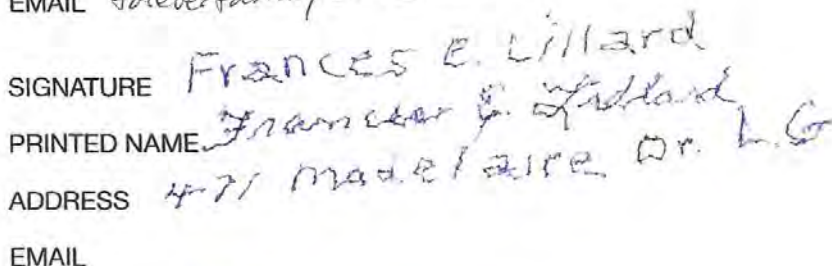 EMAIL
SIGNATURE Frances E. Lillard
PRINTED NAME Frances E. Lillard
ADDRESS 471 Dr. L.G
EMAIL